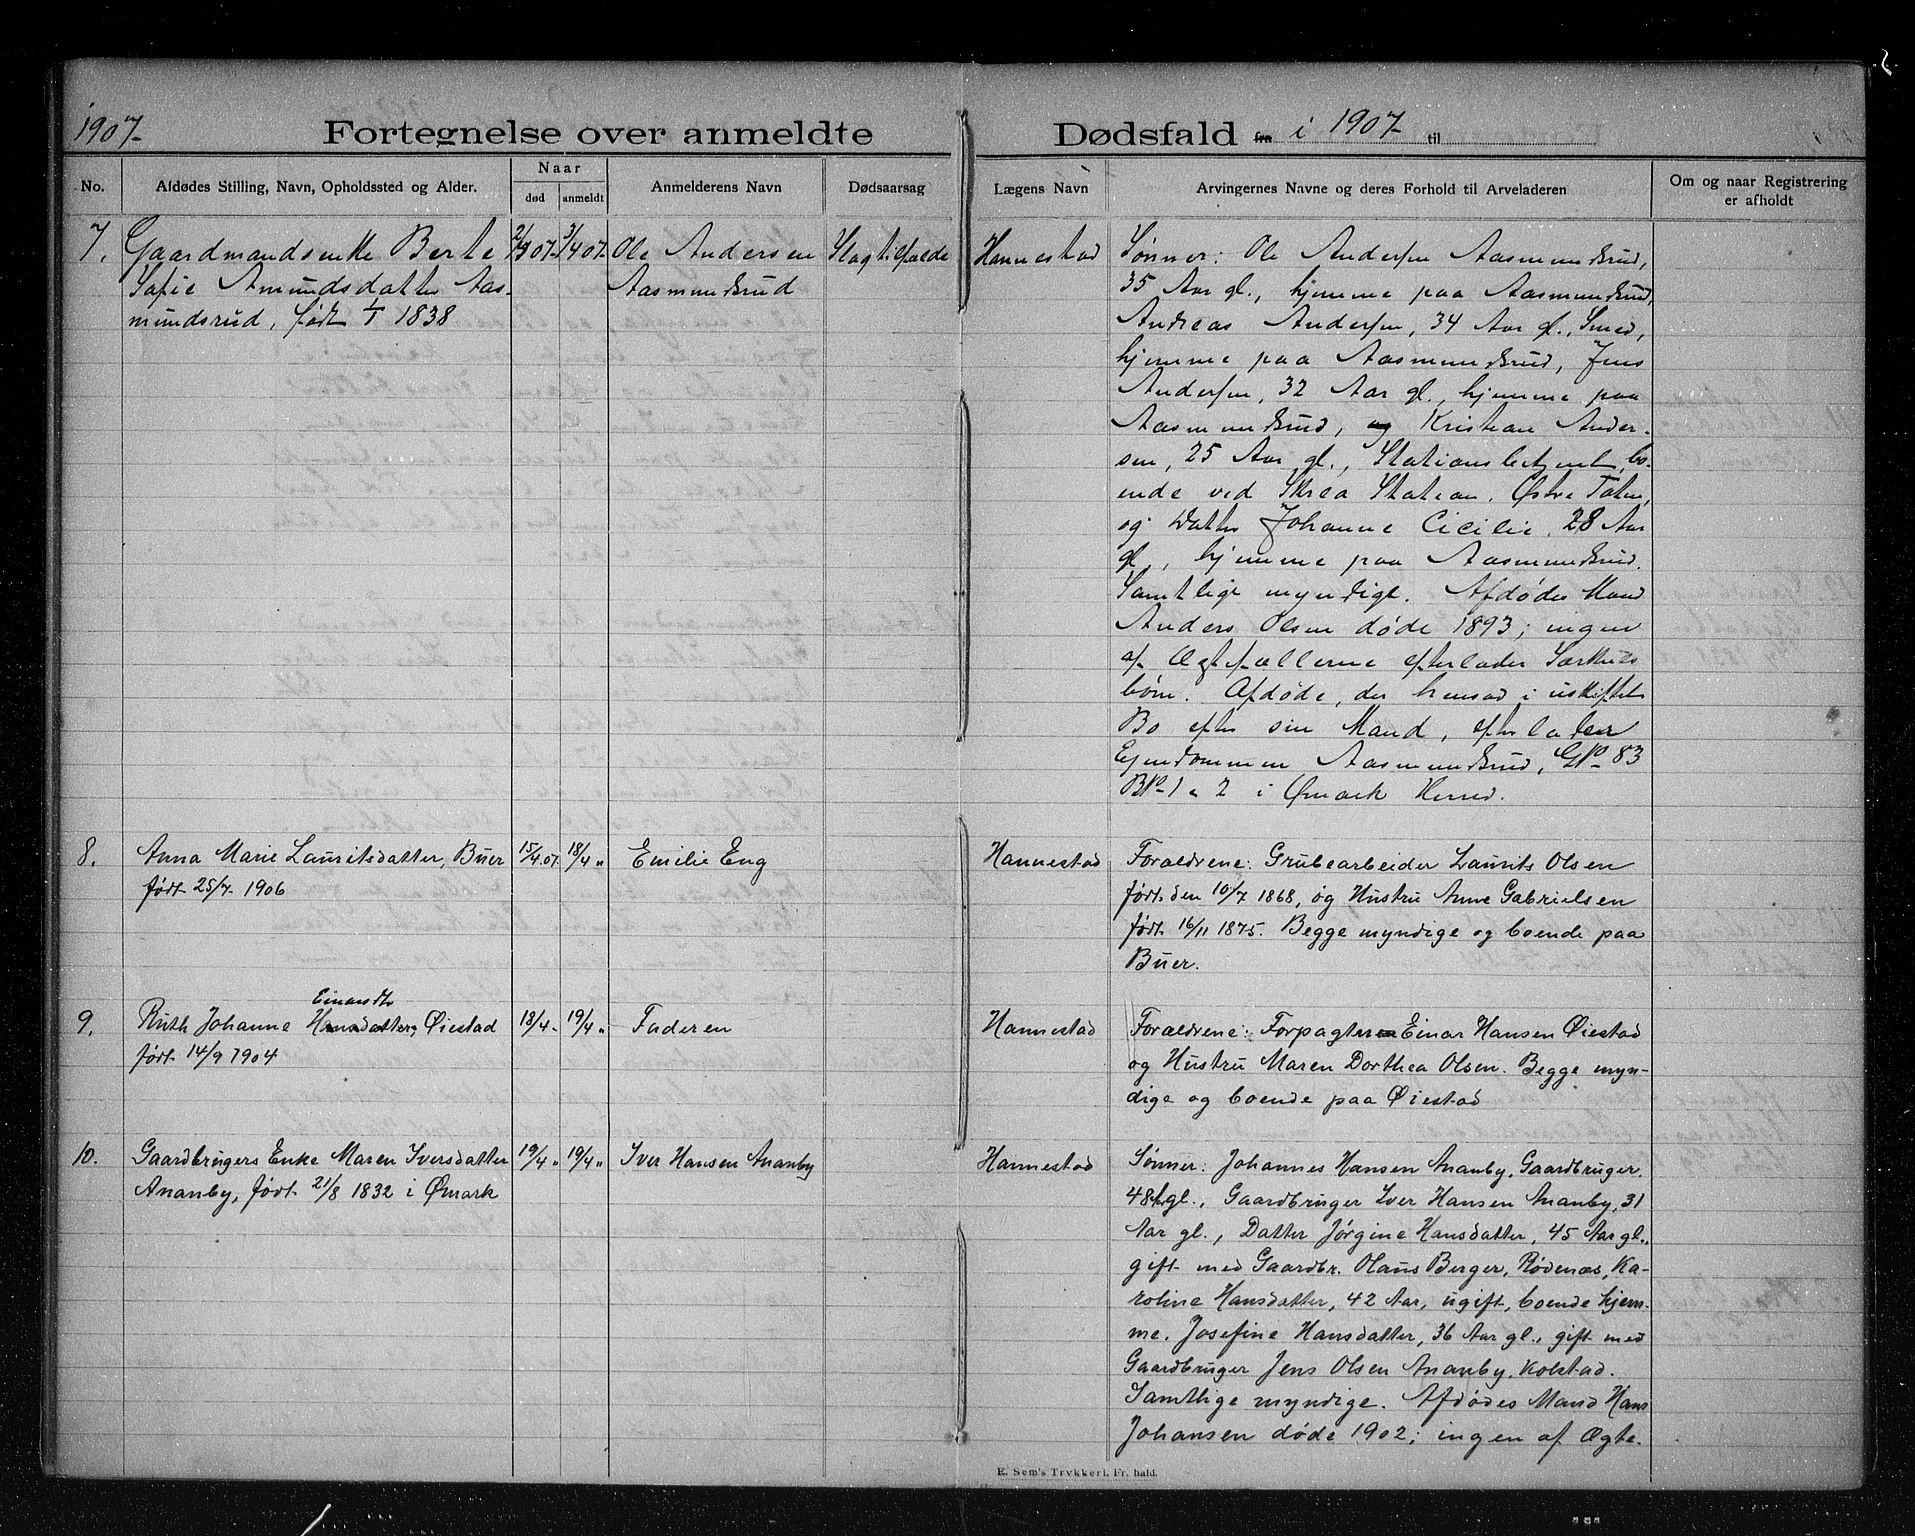 1907.
Fortegnelse over anmeldte
Dødsfald fra i 1907. til
No.
Afdødes Stilling, Navn, Opholdssted og Alder.
Naar
død
anmeldt
Anmelderens Navn
Dødsaarsag
Lægens Navn
Arvingernes Navne og deres Forhold til Arveladeren
Om og naar Registrering
er afholdt
7.
Gaardmandsenke Berte
Sofie Amundsdatter Aas-
mundsrud, født 1/1 1838
2/4 07.
3/4 07.
Ole Andersen
Aasmundsrud
Slagtilfælde
Hannestad
Sønner: Ole Andersen Aasmundsrud,
35 Aar gl., hjemme paa Aasmundsrud,
Andreas Andersen, 34 Aar gl., Smed,
hjemme paa Aasmundsrud, Jens
Andersen, 32 Aar gl., hjemme paa
Aasmundsrud, og Kristian Ander-
sen, 25 Aar gl., Stationsbetjent, bo-
ende ved Skrea Station, Østre Toten,
og Datter Johanne Cicilie, 28 Aar
gl., hjemme paa Aasmundsrud.
Samtlige myndige. Afdødes Mand
Anders Olsen døde 1893; ingen
af Ægtefællerne efterlader Særkulds
børn. Afdøde, der hensad i uskiftet
Bo efter sin Mand, efterlader
Ejendommen Aasmundsrud, GNo 83
BNo 1 & 2 i Ømark Herred.
8.
Anna Marie Lauritsdatter, Buer
født 25/7 1906
15/4 07.
18/4 "
Emilie Eng
Hannestad
Forældrene: Grubearbeider Laurits Olsen
født den 10/7 1868, og Hustru Anne Gabrielsen
født 16/11 1875. Begge myndige og boende paa
Buer.
9.
Einarsdtr
Ruth Johanne Hansdatter, Øiestad
født 14/9 1904
18/4 "
19/4 "
Faderen
Hannestad
Forældrene: Forpagter Einar Hansen Øiestad
og Hustru Maren Dorthea Olsen. Begge myn-
dige og boende paa Øiestad
10.
Gaardbrugers Enke Maren Iversdatter
Ananby, født 21/8 1832 i Ømark
19/4 "
19/4 "
Iver Hansen Ananby
Hannestad
Sønner: Johannes Hansen Ananby, Gaardbruger,
48 Aar gl., Gaardbruger Iver Hansen Ananby, 31
Aar gl., Datter Jørgine Hansdatter, 45 Aar gl.,
gift med Gaardbr. Olaus Berger, Rødenæs, Ka-
roline Hansdatter, 42 Aar, ugift, boende hjem-
me. Josefine Hansdatter, 36 Aar gl., gift med
Gaardbruger Jens Olsen Ananby, Kolstad.
Samtlige myndige. Afdødes Mand Hans
Johansen døde 1902; ingen af Ægte-
E. Sem's Trykkeri. Fr.hald.